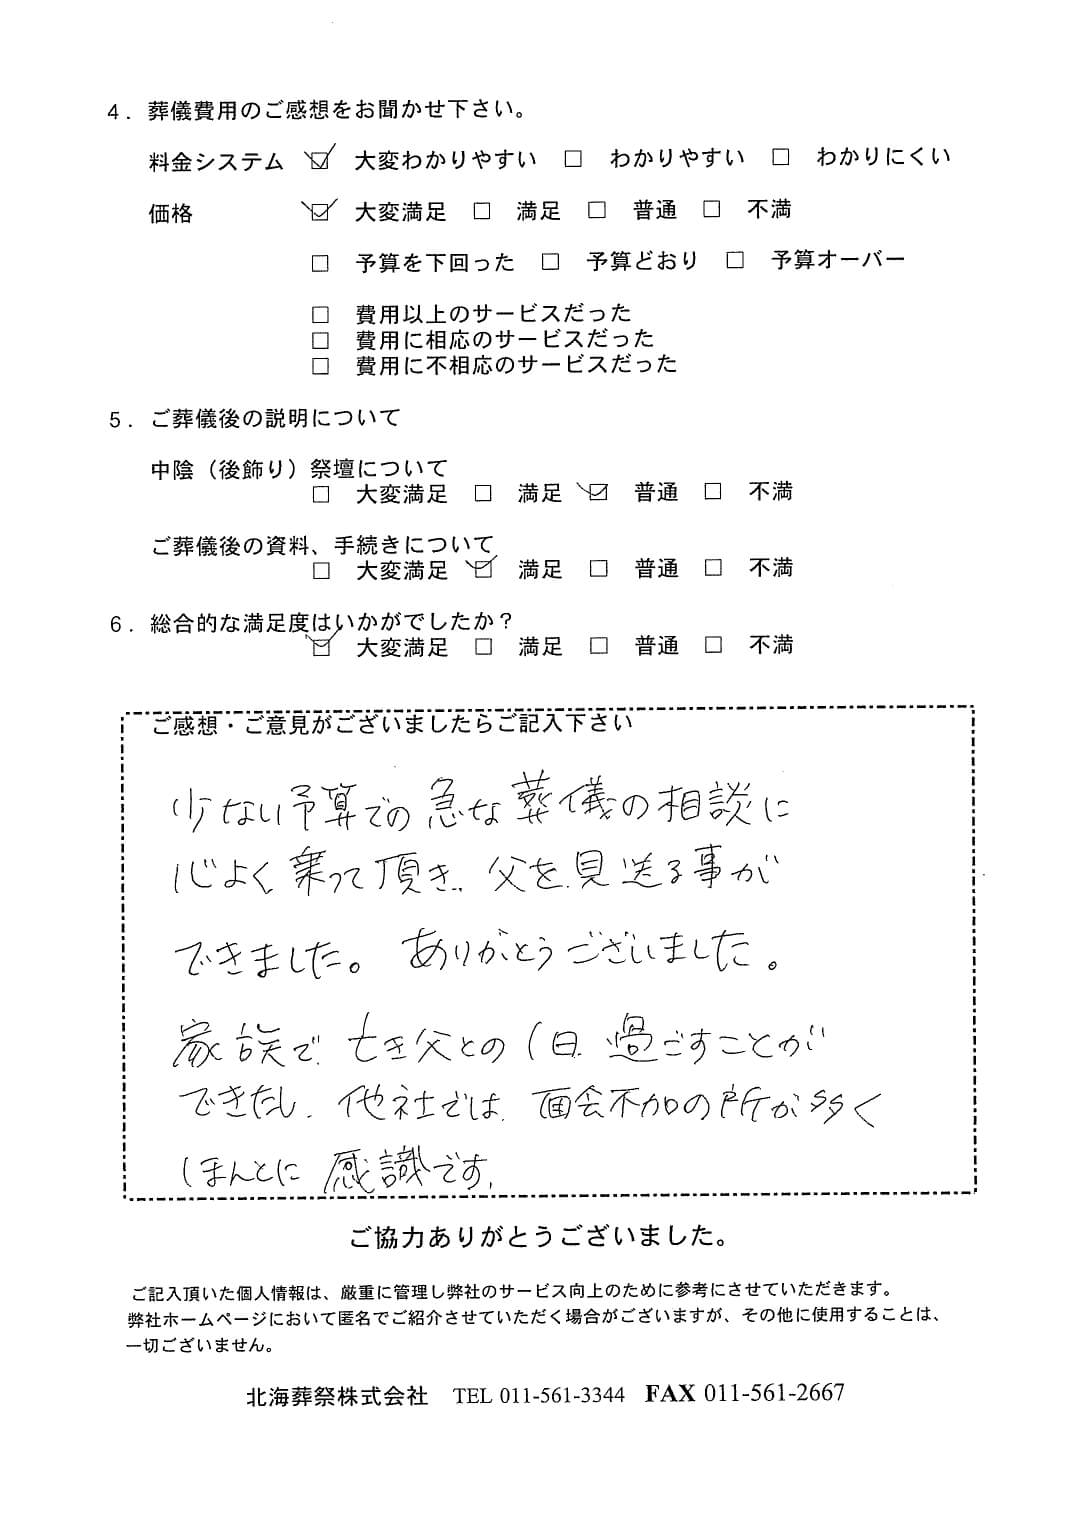 4．葬儀費用のご感想をお聞かせ下さい。
料金システム ☑ 大変わかりやすい □ わかりやすい □ わかりにくい
価格 ☑ 大変満足 □ 満足 □ 普通 □ 不満
□ 予算を下回った □ 予算どおり □ 予算オーバー
□ 費用以上のサービスだった
□ 費用に相応のサービスだった
□ 費用に不相応のサービスだった
5．ご葬儀後の説明について
中陰（後飾り）祭壇について
□ 大変満足 □ 満足 ☑ 普通 □ 不満
ご葬儀後の資料、手続きについて
□ 大変満足 ☑ 満足 □ 普通 □ 不満
6．総合的な満足度はいかがでしたか？
☑ 大変満足 □ 満足 □ 普通 □ 不満
ご感想・ご意見がございましたらご記入下さい
少ない予算での急な葬儀の相談に
心よく乗って頂き、父を見送る事が
できました。ありがとうございました。
家族で、亡き父との1日、過ごすことが
できたし、他社では、面会不加の所が多く
ほんとに感識です。
ご協力ありがとうございました。
ご記入頂いた個人情報は、厳重に管理し弊社のサービス向上のために参考にさせていただきます。
弊社ホームページにおいて匿名でご紹介させていただく場合がございますが、その他に使用することは、
一切ございません。
北海葬祭株式会社 TEL 011-561-3344 FAX 011-561-2667